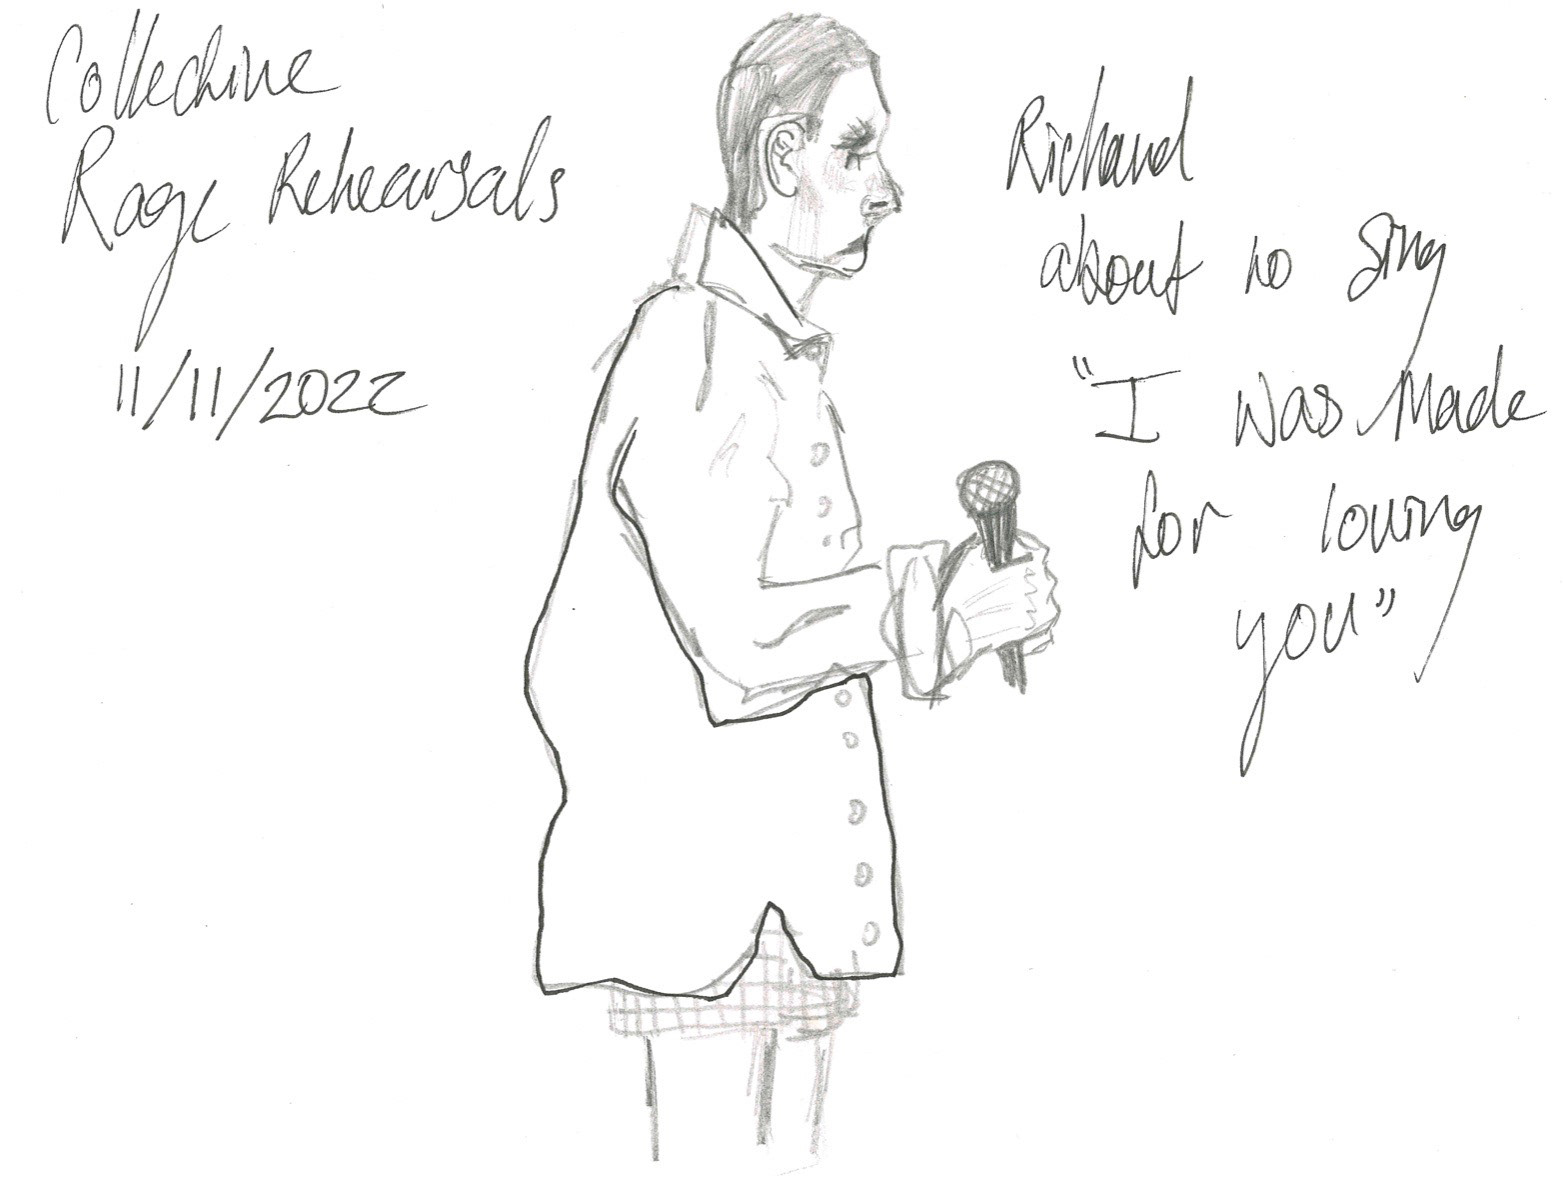 Collective
Rage Rehearsals
11/11/2022
Richard
about to sing
"I was Made
for loving
you"